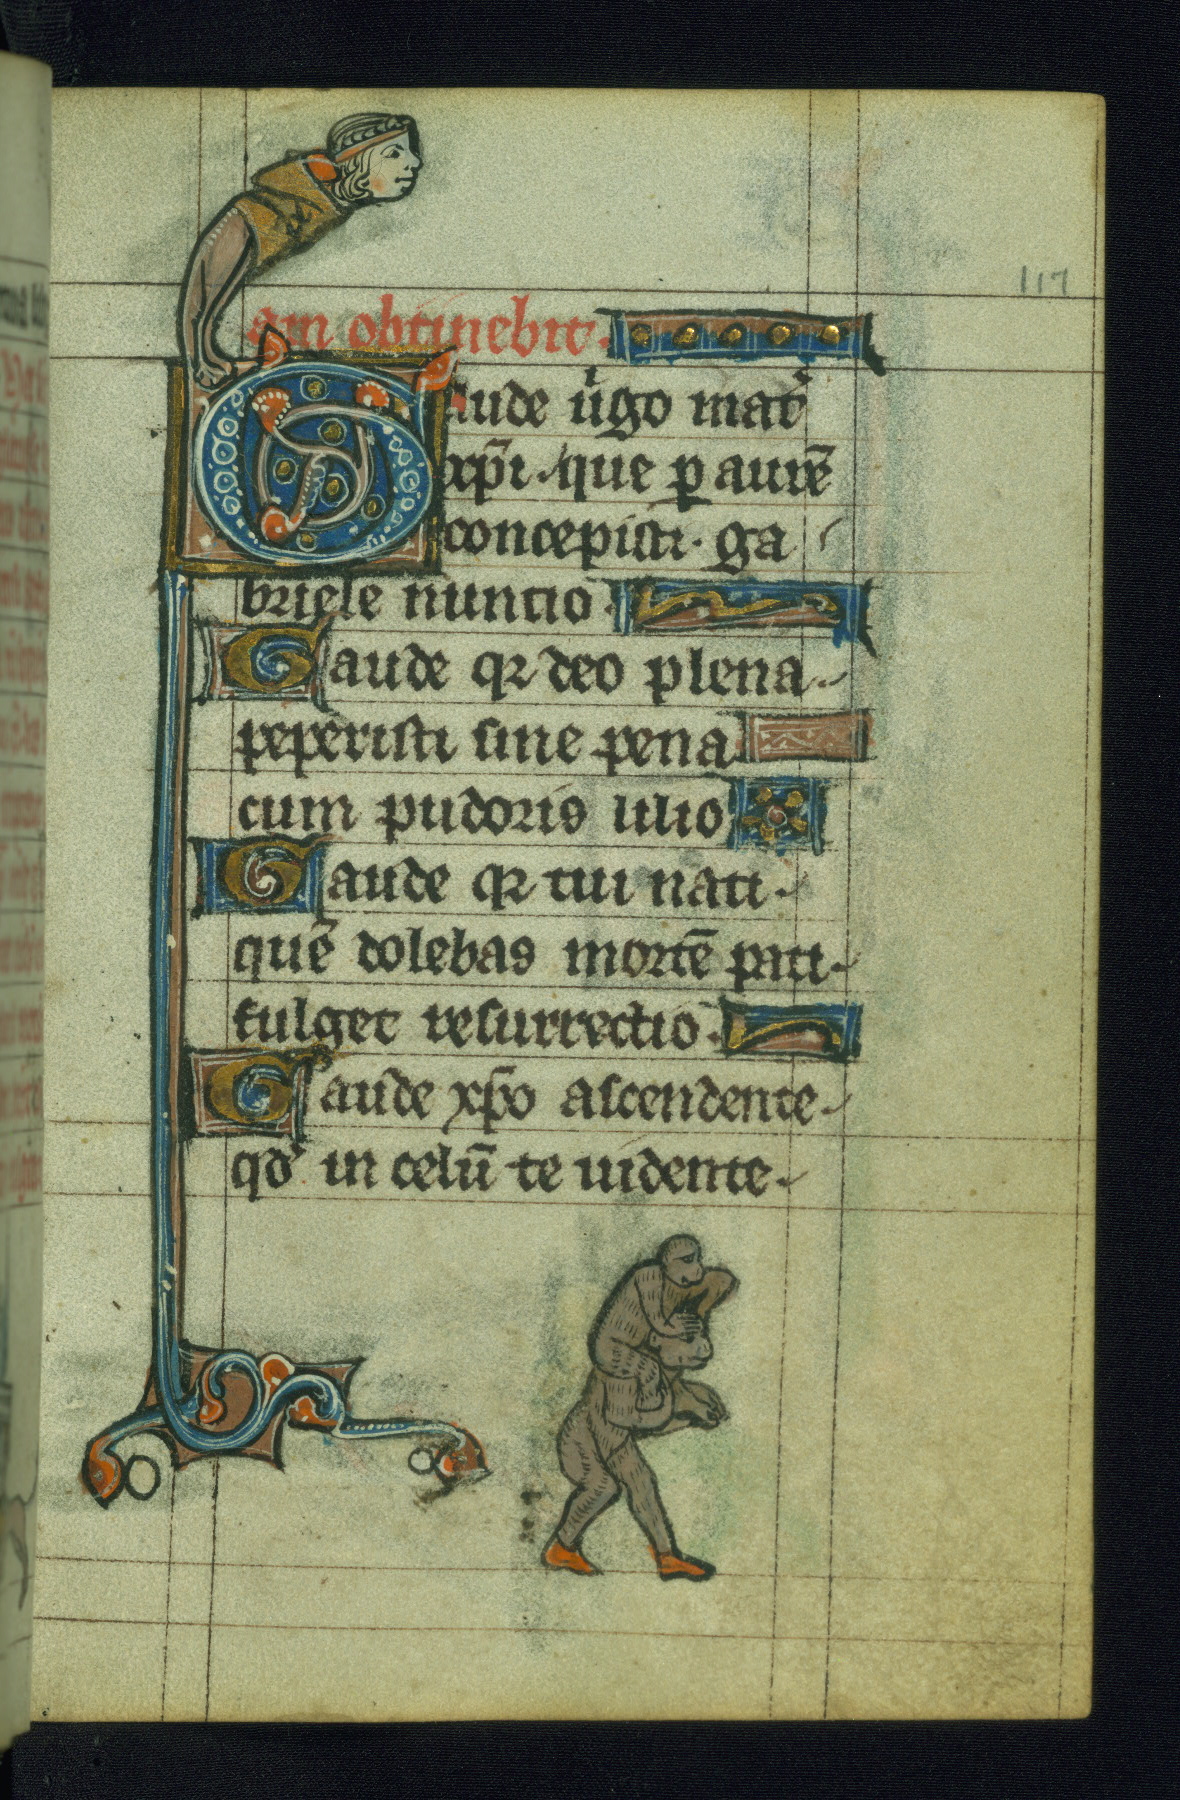 117
am obtinebit.
Gaude u̍go mat᷑
xp̅i. que ꝑ aurē
concepisti. ga
briele nuncio.
Gaude qꝛ deo plena.
peperisti sine pena
cum pudoris lilio
Gaude qꝛ tui nati.
quē dolebas mortē pati.
fulget resurrectio.
Gaude xp̅o ascendente.
qd᷑ in celū te uidente.